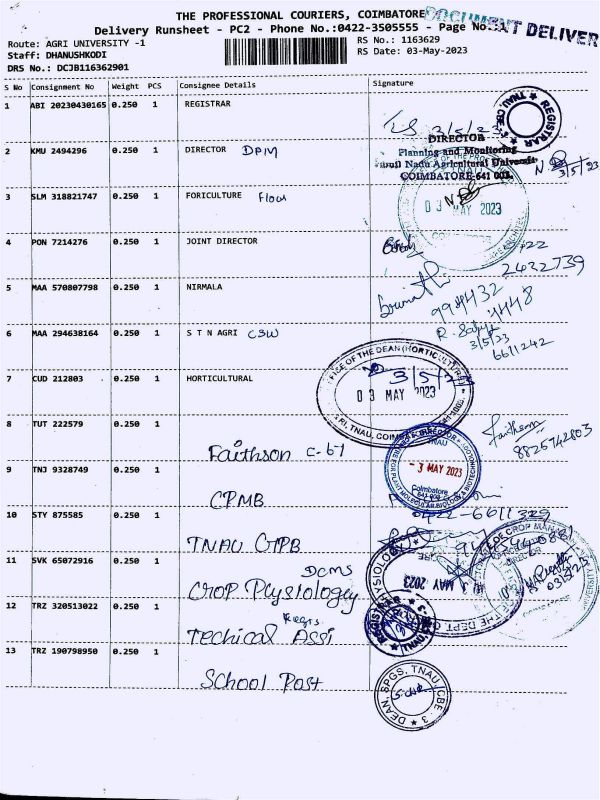 THE PROFESSIONAL COURIERS, COIMBATORE
DOCUMENT DELIVER
Delivery Runsheet - PC2 - Phone No.:0422-3505555 - Page No.:
Route: AGRI UNIVERSITY -1
RS No.: 1163629
Staff: DHANUSHKODI
RS Date: 03-May-2023
DRS No.: DCJB116362901
S No Consignment No Weight PCS Consignee Details Signature
1 ABI 20230430165 0.250 1 REGISTRAR
3/5/2
REGISTRAR
TNAU, CBE - 3
2 KMU 2494296 0.250 1 DIRECTOR DPM
DIRECTOR
Planning and Monitoring
Tamil Nadu Agricultural University
COIMBATORE-641 003.
3/5/23
3 SLM 318821747 0.250 1 FORICULTURE Flow
TNAU
03 MAY 2023
4 PON 7214276 0.250 1 JOINT DIRECTOR
2432739
5 MAA 570807798 0.250 1 NIRMALA
994432
4448
6 MAA 294638164 0.250 1 S T N AGRI CSW
3/5/23
6611242
7 CUD 212803 0.250 1 HORTICULTURAL
OFFICE OF THE DEAN (HORTICULTURE)
3/5/23
03 MAY 2023
TNAU, COIMBATORE
8 TUT 222579 0.250 1 Faithson C-61
Faithson
8825742803
9 TNJ 9328749 0.250 1 CPMB
TNAU
- 3 MAY 2023
Coimbatore
641 003
CENTRE FOR PLANT MOLECULAR BIOLOGY & BIOTECHNOLOGY
0422-6611329
10 STY 875585 0.250 1 TNAU CTPB
11 SVK 65072916 0.250 1 DCMS
Crop Physiology
MAY 2023
THE DEPT. OF
DIRECTOR
03/5/23
12 TRZ 320513022 0.250 1 Regis
Techical Assi
REGISTRAR
13 TRZ 190798950 0.250 1 School Post
DEAN, SPGS, TNAU, CBE - 3